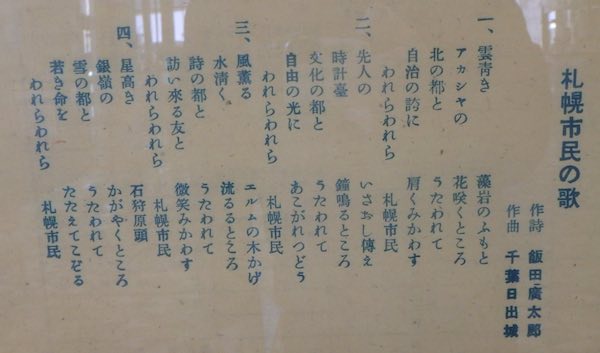 札幌市民の歌
作詩 飯田廣太郎
作曲 千葉日出城
一、雲青き 藻岩のふもと
アカシヤの 花咲くところ
北の都と うたわれて
自治の誇に 肩くみかわす
われらわれら 札幌市民
二、先人の いさおし傳え
時計臺 鐘鳴るところ
文化の都と うたわれて
自由の光に あこがれつどう
われらわれら 札幌市民
三、風薫る エルムの木かげ
水清く 流るるところ
詩の都と うたわれて
訪い來る友と 微笑みかわす
われらわれら 札幌市民
四、星高き 石狩原頭
銀嶺の かがやくところ
雪の都と うたわれて
若き命を たたえてこぞる
われらわれら 札幌市民